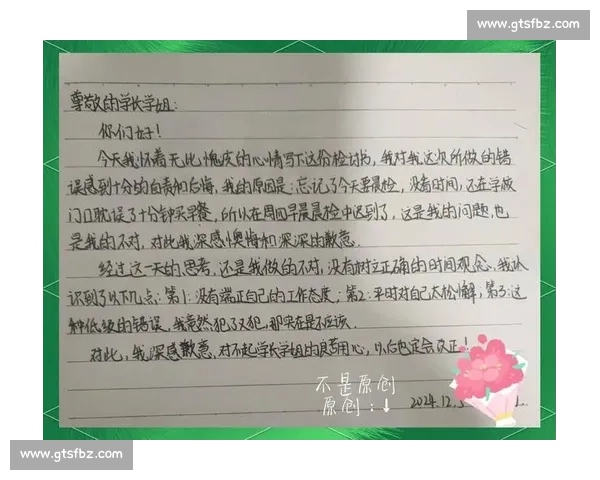 www.gtsfbz.com
尊敬的学长学姐：
你们好！
今天我怀着无比愧疚的心情写下这份检讨书，我对我这次所做的错
误感到十分的自责和后悔，我的原因是：忘记了今天要晨检，没看时间，还在学校
门口耽误了十分钟买早餐，所以在周四早晨晨检中迟到了，这是我的问题，也
是我的不对，对此我深感懊悔和深深的歉意．
经过这一天的思考，还是我做的不对，没有树立正确的时间观念，我认
识到了以下几点：第1：没有端正自己的工作态度；第2：平时对自己太松懈，第3：这
种低级的错误，我竟然犯了又犯，那实在是不应该．
对此，我深感歉意，对不起学长学姐的良苦用心，以后也定会改正！
不是原创
原创：↓
2024.12.
www.gtsfbz.com